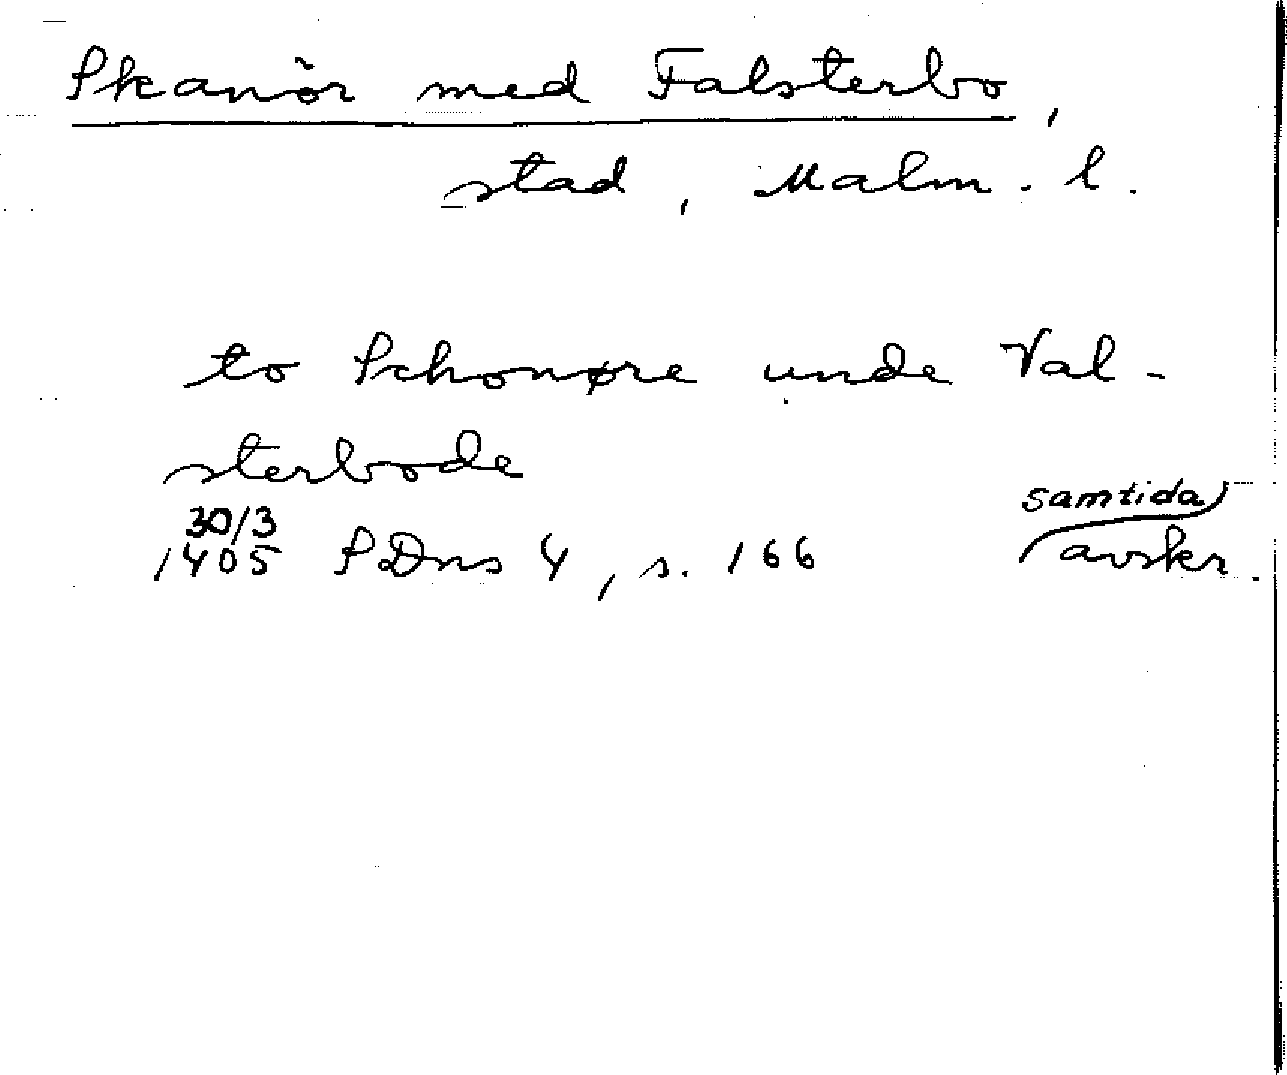 Skanör med Falsterbo,
stad, Malm. l.
to Schonøre unde Val-
sterbode
30/3
1405 SDns 4, s. 166 samtida
avskr.